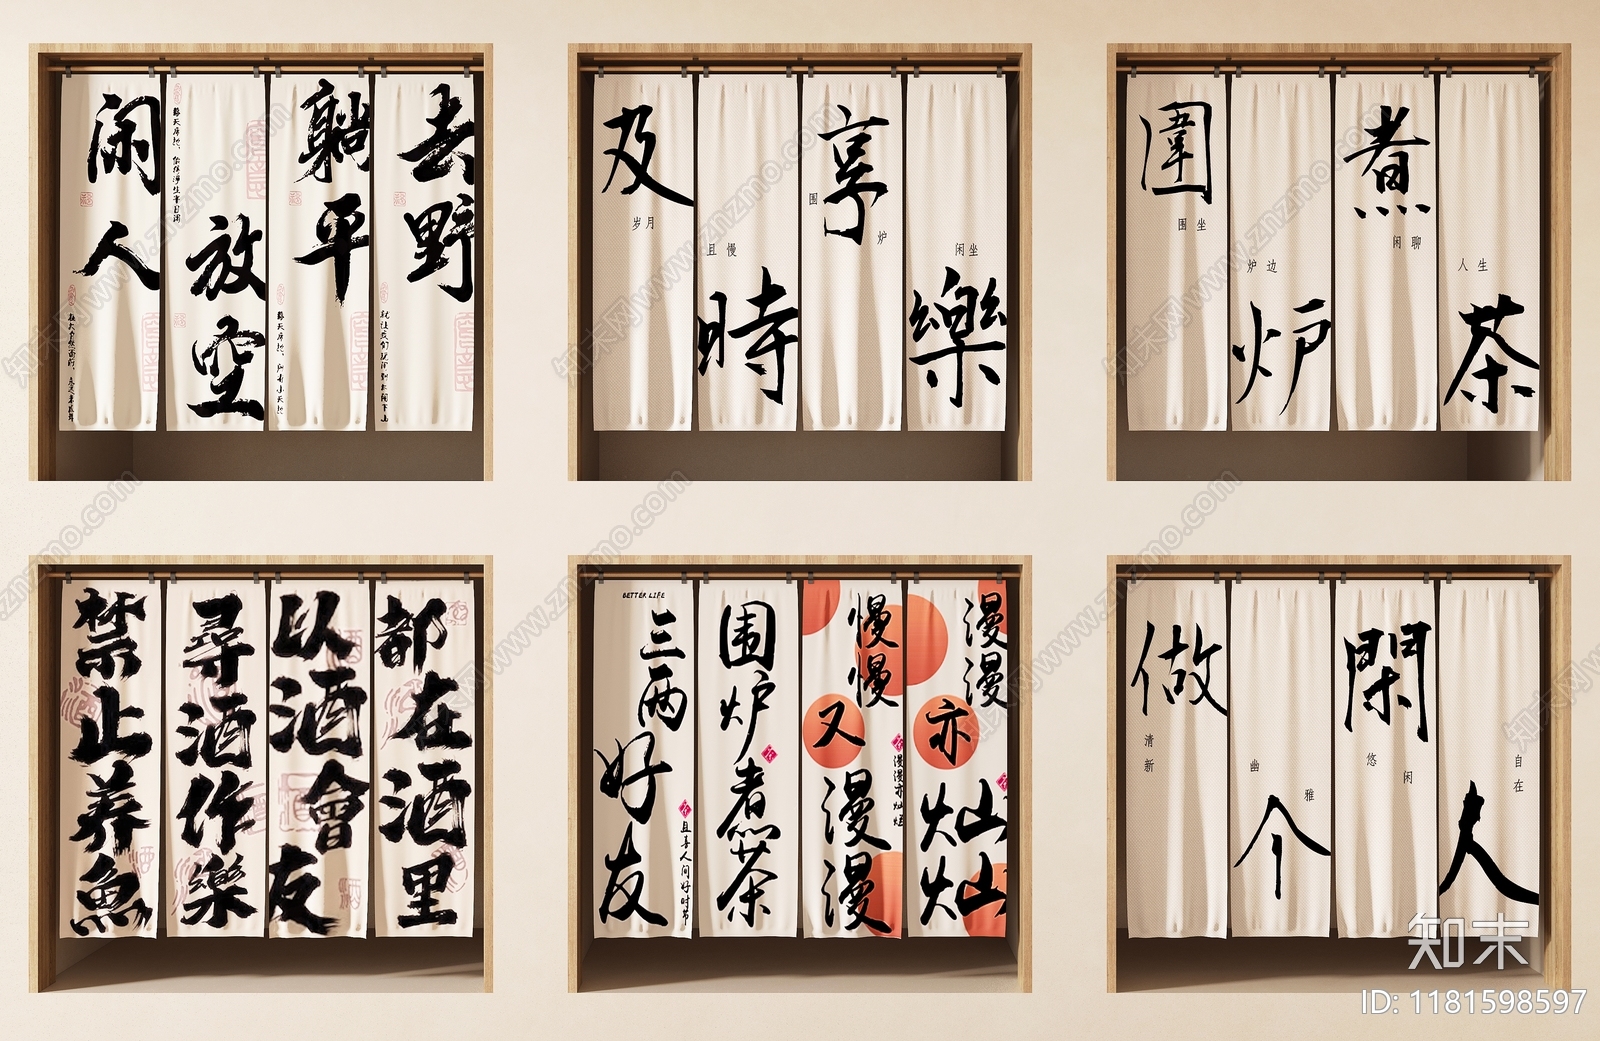 闲人
放空
躺平
去野
及
岁月
且慢
時
享
围
炉
闲坐
樂
圍
围坐
炉边
炉
煮
闲聊
人生
茶
禁止养魚
尋酒作樂
以酒會友
都在酒里
BETTER LIFE
三两好友
且喜人间好时节
围炉煮茶
慢慢又漫漫
漫漫亦灿灿
漫漫亦灿灿
做
清新
幽
雅
个
閑
悠
闲
自在
人
知末
ID: 1181598597
知末网www.znzmo.com